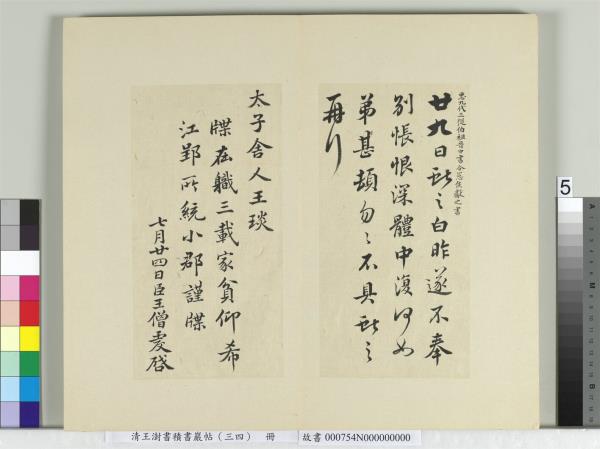 臣九代三從伯祖晉中書令憲侯獻之書
廿九日獻之白昨遂不奉
別悵恨深體中復何如
弟甚頓勿勿不具獻之
再拜
太子舍人王琰
牒在職三載家貧仰希
江郢所統小郡謹牒
七月廿四日臣王僧虔啓
5
清王澍書積書巖帖（三四） 冊
故書 000754N000000000